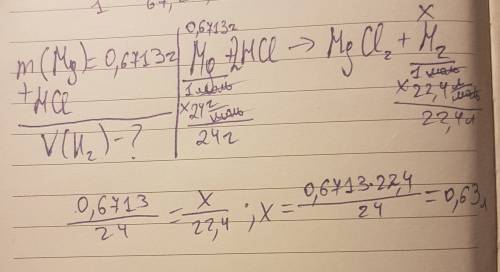 1 67,2
m(Mg)=0,6713г
+HCl
V(H₂)-?
0,6713г x
Mg+2HCl → MgCl₂ + H₂
1 моль 1 моль
x 24г/моль x 22,4 л/моль
24г 22,4л
0,6713/24 = x/22,4 ; x = 0,6713·22,4/24 = 0,63л